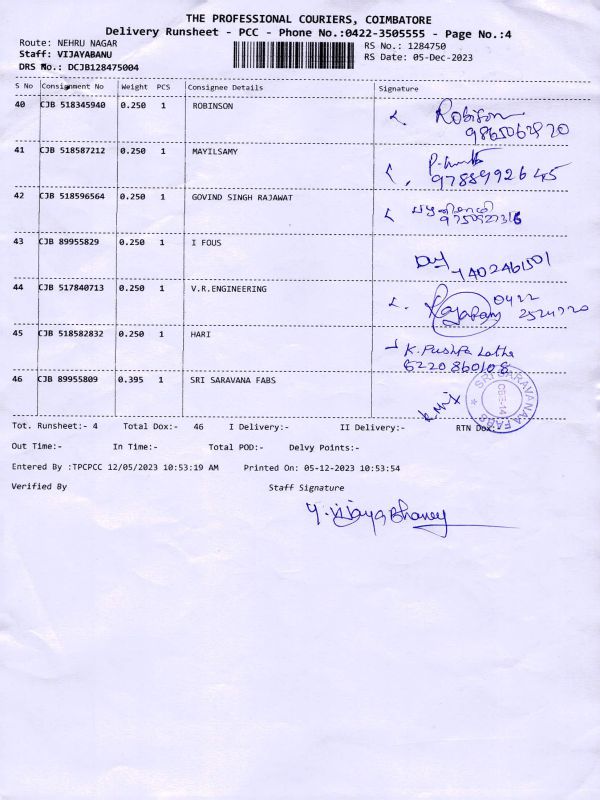 THE PROFESSIONAL COURIERS, COIMBATORE
Delivery Runsheet - PCC - Phone No.:0422-3505555 - Page No.:4
Route: NEHRU NAGAR RS No.: 1284750
Staff: VIJAYABANU RS Date: 05-Dec-2023
DRS No.: DCJB128475004
S No Consignment No Weight PCS Consignee Details Signature
40 CJB 518345940 0.250 1 ROBINSON Robinson
9865062820
41 CJB 518587212 0.250 1 MAYILSAMY
9788992645
42 CJB 518596564 0.250 1 GOVIND SINGH RAJAWAT
43 CJB 89955829 0.250 1 I FOUS
7402461501
44 CJB 517840713 0.250 1 V.R.ENGINEERING 0422
2524720
45 CJB 518582832 0.250 1 HARI K. Pushpa Latha
6220860108
46 CJB 89955809 0.395 1 SRI SARAVANA FABS
SRI SARAVANAA FABS
CBE-14
Tot. Runsheet:- 4 Total Dox:- 46 I Delivery:- II Delivery:- RTN Dox:-
Out Time:- In Time:- Total POD:- Delvy Points:-
Entered By :TPCPCC 12/05/2023 10:53:19 AM Printed On: 05-12-2023 10:53:54
Verified By Staff Signature
Y. Vijaya Bhaney